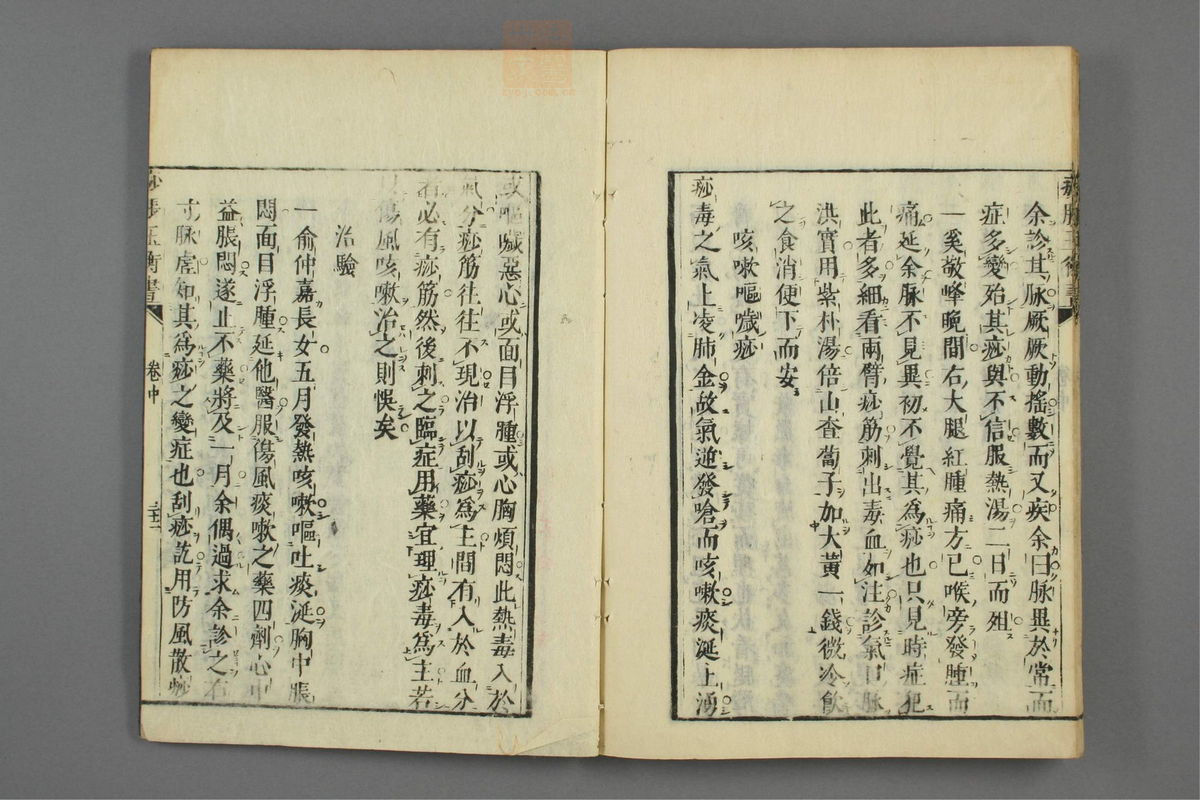 余診其脉厥厥動搖數而又疾余曰脉異於當而
症多變殆其痧與不信服熱湯二日而殂
一奚敬峰晩間右大腿紅腫痛方已喉旁發腫而
痛延余脉不見異初不覺其為痧也只見時症犯
此者多細看兩臂痧筋刺出毒血如注診氣口脉
洪實用紫朴湯倍山查蔔子加大黃一錢微冷飲
之食消便下而安
咳嗽嘔噦痧
痧毒之氣上凌肺金故氣逆發嗆而咳嗽痰涎上湧
或嘔噦惡心或面目浮腫或心胸煩悶此熱毒入於
氣分痧筋往往不現治以刮痧為主間有入於血分
者必有痧筋然後刺之臨症用藥宜理痧毒為主若
以傷風咳嗽治之則悞矣
治驗
一俞仲嘉長女五月發熱咳嗽嘔吐痰涎胸中脹
悶面目浮腫延他醫服傷風痰嗽之藥四劑心中
益脹悶遂止不藥將及一月余偶過求余診之右
寸脉虛知其為痧之變症也刮痧訖用防風散痧
痧脹玉衡書
卷中